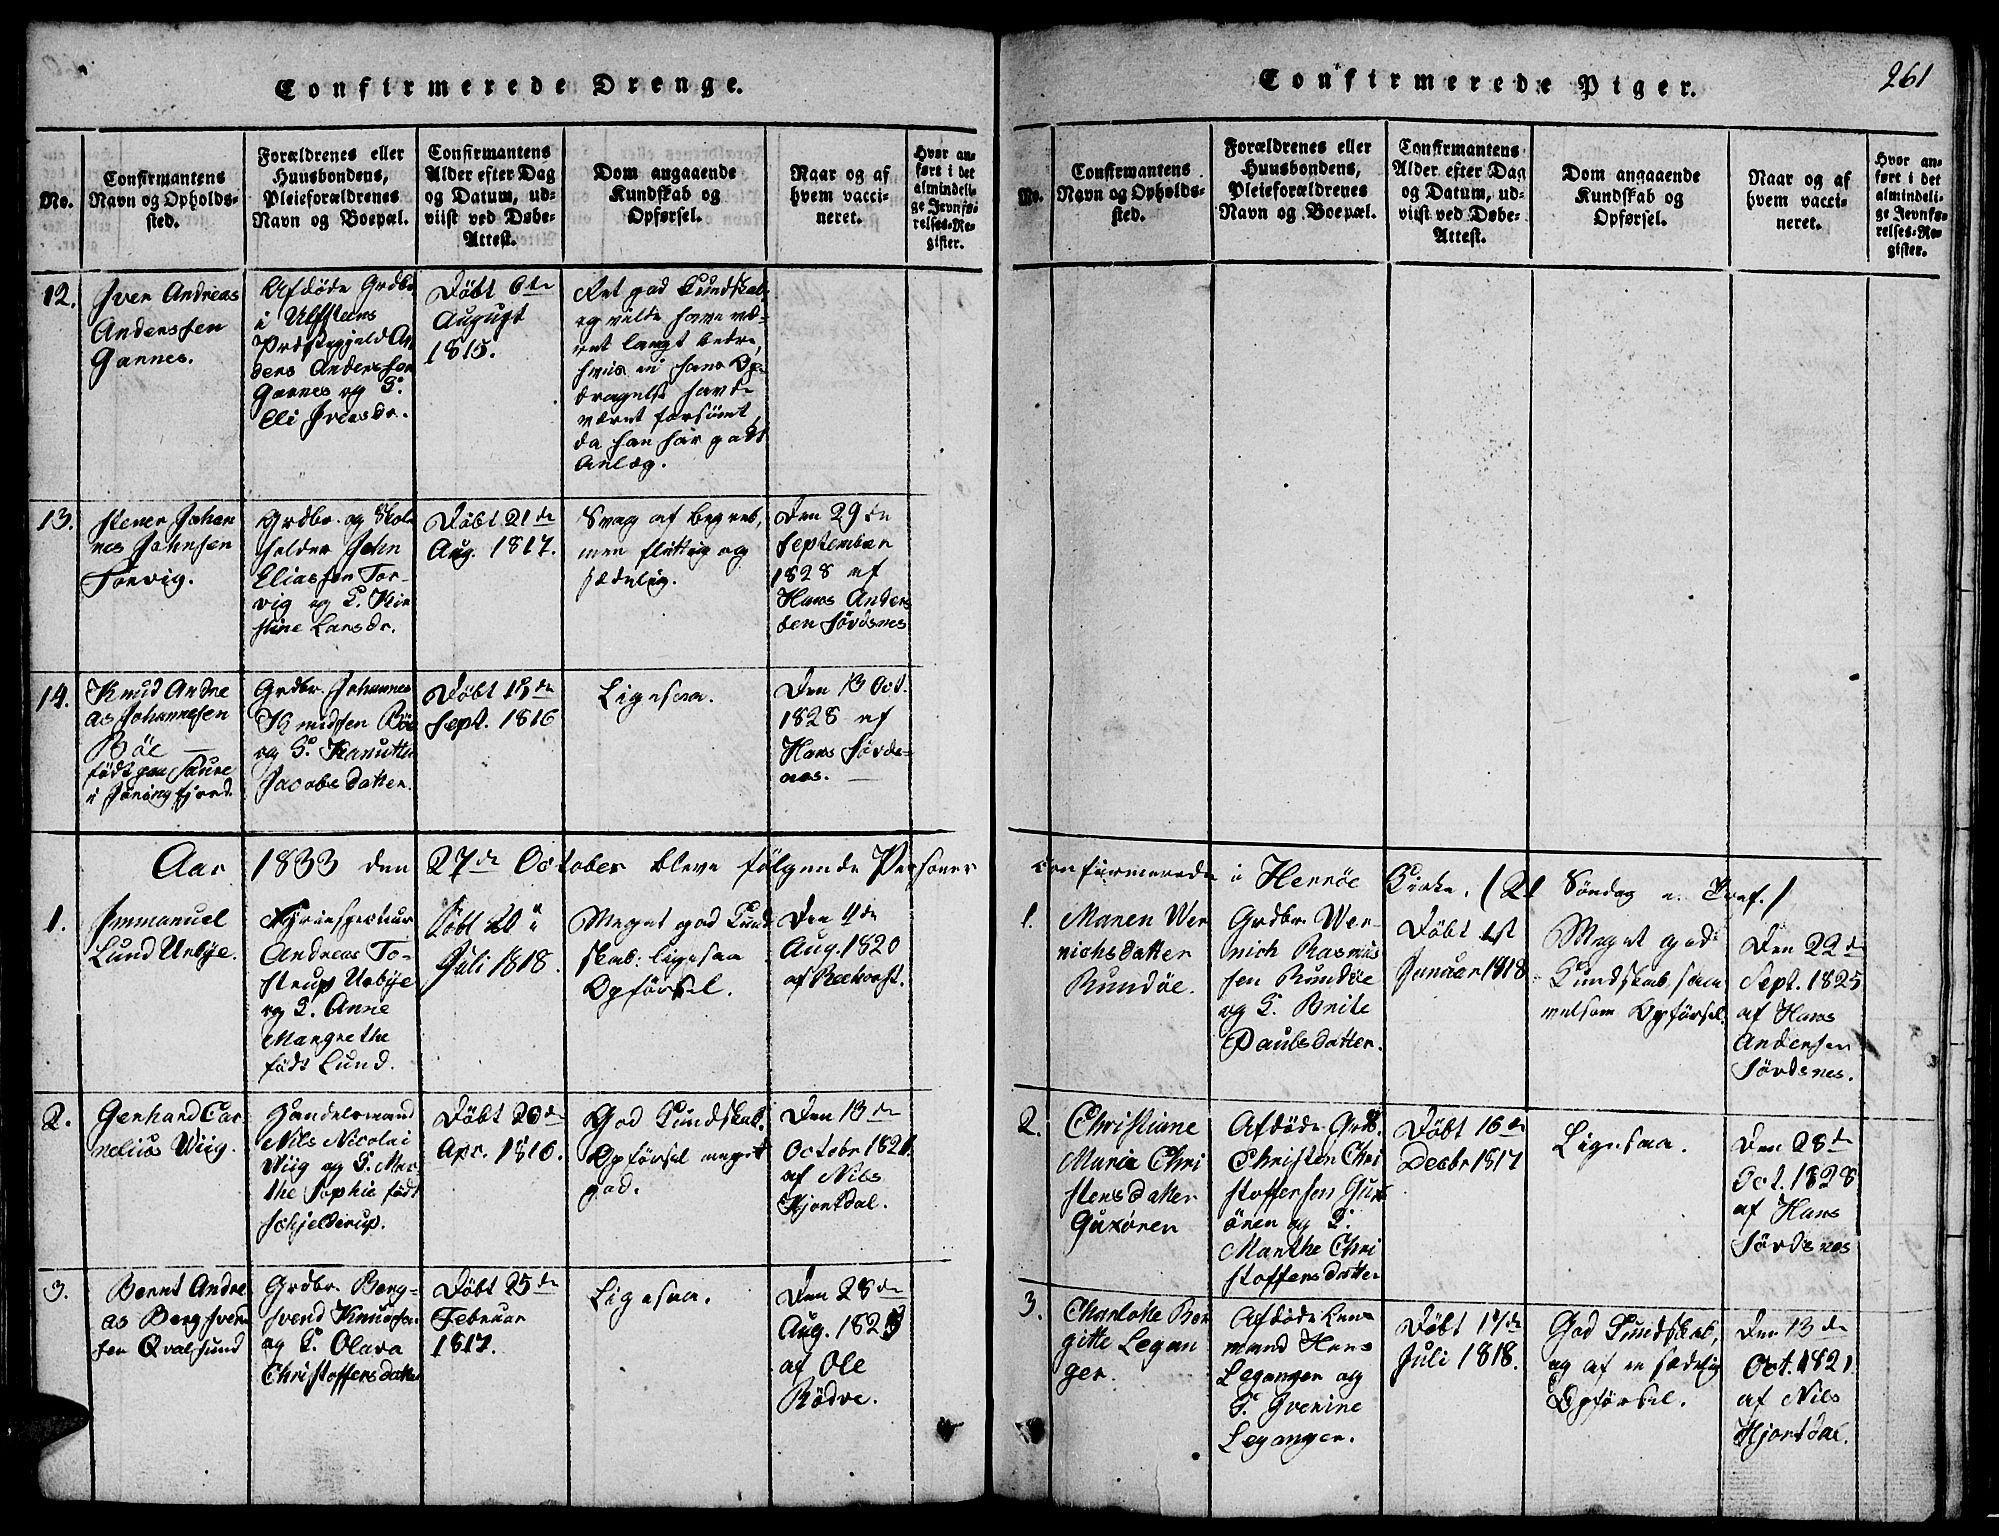 Confirmerede Drenge.
No.
Confirmantens
Navn og Opholds-
sted.
Forældrenes eller
Huusbondens,
Pleieforældrenes
Navn og Boepæl.
Confirmantens
Alder efter Dag
og Datum, ud-
viist ved Døbe-
Attest.
Dom angaaende
Kundskab og
Opførsel.
Naar og af
hvem vacci-
neret.
Hvor an-
ført i det
almindeli-
ge Jevnfø-
relses-Re-
gister.
12.
Iver Andreas
Anderssen
Garnes.
Afdøde Grdbr.
i Ulfsteens
Præstegjeld An
ders Anderssen
Garnes og K.
Eli Iversdr.
Døbt 6te
August
1815.
Ret god Kundskab
og vilde have væ-
ret langt bedre,
hvis ei hans Op-
dragelse havde
været forsömt
da han har godt
Anlæg.
13.
Stener Johan
nes Johnsen
Torvig.
Grdbr. og Skole
holder John
Eliassen Tor-
vig og K. Kir
stine Larsdr.
Døbt 21de
Aug. 1817.
Svag af Begreb,
men flittig og
sædelig.
Den 29de
September
1828 af
Hans Anders
sen Sørdsnes
14.
Knud Andre
as Johannesen
Böe
födt paa Saure
i Jöringfjord.
Grdbr. Johannes
Knudsen Böe
og K. Kanutte
Jacobsdatter.
Døbt
Sept. 1816
Ligesaa.
Den 13 Oct.
1828 af
Hans Sørds-
nes.
Aar 1833 den 27de October bleve følgende Personer
1.
Immanuel
Lund Urbye.
Andreas To-
strup Urbye
og K. Anne
Margrethe
födt Lund.
Döbt 20
Juli 1818.
Meget god Kund
skab: ligesaa
Opførsel.
Den 4de
Aug. 1820
af
2.
Gerhard Cor
nelius Wiig.
Handelsmand
Nils Nicolai
Wiig og K. Mar
the Sophie födt
Schjelderup.
Døbt 20de
Apr. 1816.
God Kundskab.
Opførsel meget
god.
Den 13de
Octobr 1821
af Nils
Hjortdal.
3.
Bernt Andre
as Bergsven
sen Qvalsund
Grdbr. Berg-
svend Knudsen
og K. Olava
Christoffersdatter
Døbt 25de
Februar
1817.
Ligesaa.
Den 28de
Aug. 1823
af Ole
Rödve.
Confirmerede Piger.
261
No.
Confirmantens
Navn og Opholds-
sted.
Forældrenes eller
Huusbondens,
Pleieforældrenes
Navn og Boepæl.
Confirmantens
Alder efter Dag
og Datum, ud-
viist ved Døbe-
Attest.
Dom angaaende
Kundskab og
Opførsel.
Naar og af
hvem vacci-
neret.
Hvor an-
ført i det
almindeli-
ge Jevnfø-
relses-Re-
gister.
confirmerede i Herröe Kirke. (21 Söndag e. Tref.)
1.
Maren Wer
nichsdatter
Rundöe.
Grdbr. Wer-
nich Rasmus
sen Rundöe
og K. Brite
Paulsdatter.
Døbt 1st
Januar 1818
Meget god
Kundskab, saa
velsom Opførsel.
Den 22de
Sept. 1825
af Hans
Andersen
Sørdsnes.
2.
Christiane
Marie Chri
stensdatter
Gurören
Afdøde Grdb.
Christen Chri
stoffersen Gur
ören og K.
Marthe Chri
stoffersdatter
Døbt 16de
Decbr 1817
Ligesaa.
Den 28de
Oct. 1828
af Hans
Sørdsnes
3.
Charlotte Ber
gitte Legan
ger.
Afdöde Lens
mand Hans
Leganger og
K. Iverine
Leganger.
Døbt 17de
Juli 1818.
God Kundskab,
og af en sædelig
Opførsel.
Den 13de
Oct. 1821
af Nils
Hjortdal.